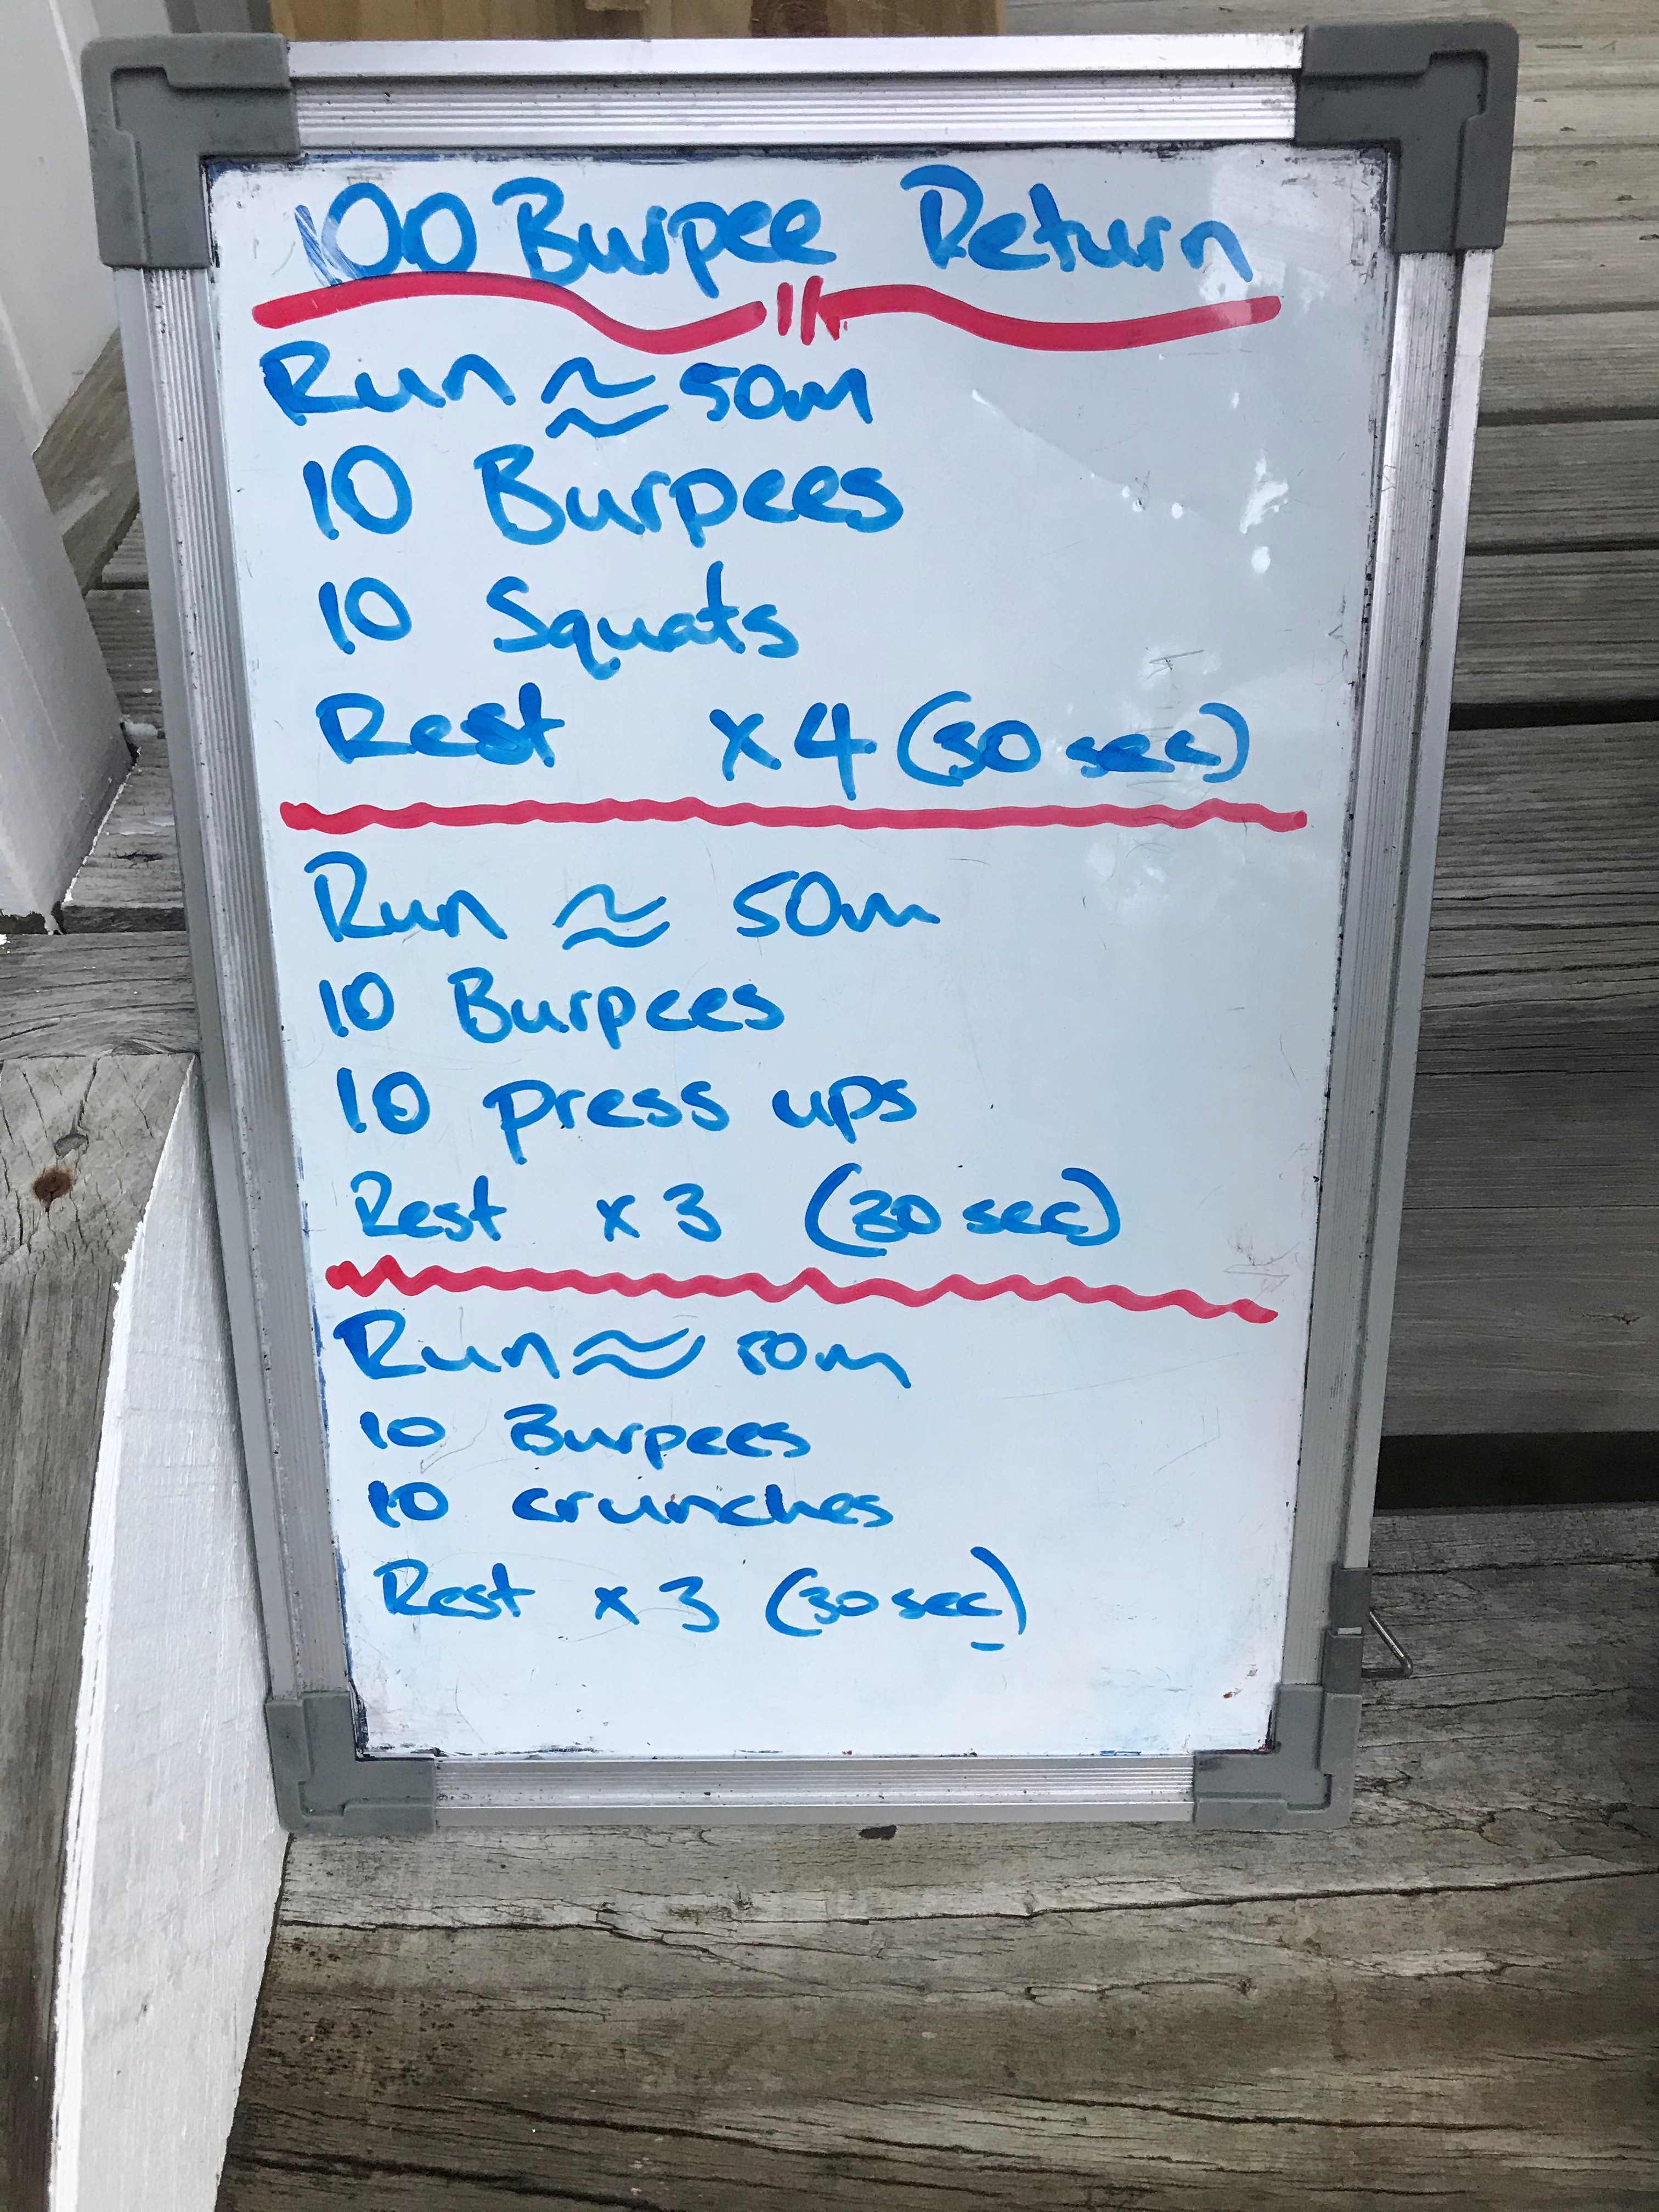 100 Burpee Return
Run ≈ 50m
10 Burpees
10 Squats
Rest x 4 (30 sec)
Run ≈ 50m
10 Burpees
10 press ups
Rest x 3 (30 sec)
Run ≈ 50m
10 Burpees
10 crunches
Rest x 3 (30 sec)